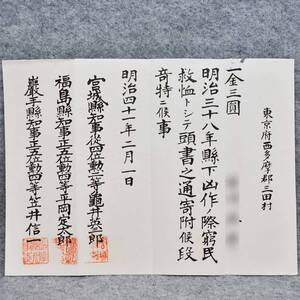 東京府西多摩郡三田村
一金三圓
明治三十八年縣下凶作ノ際窮民
救恤トシテ頭書之通寄附候段
奇特ニ候事
明治四十一年二月一日
宮城縣知事従四位勲三等龜井英三郎
福島縣知事正五位勲四等平岡定太郎
巖手縣知事正五位勲四等笠井信一